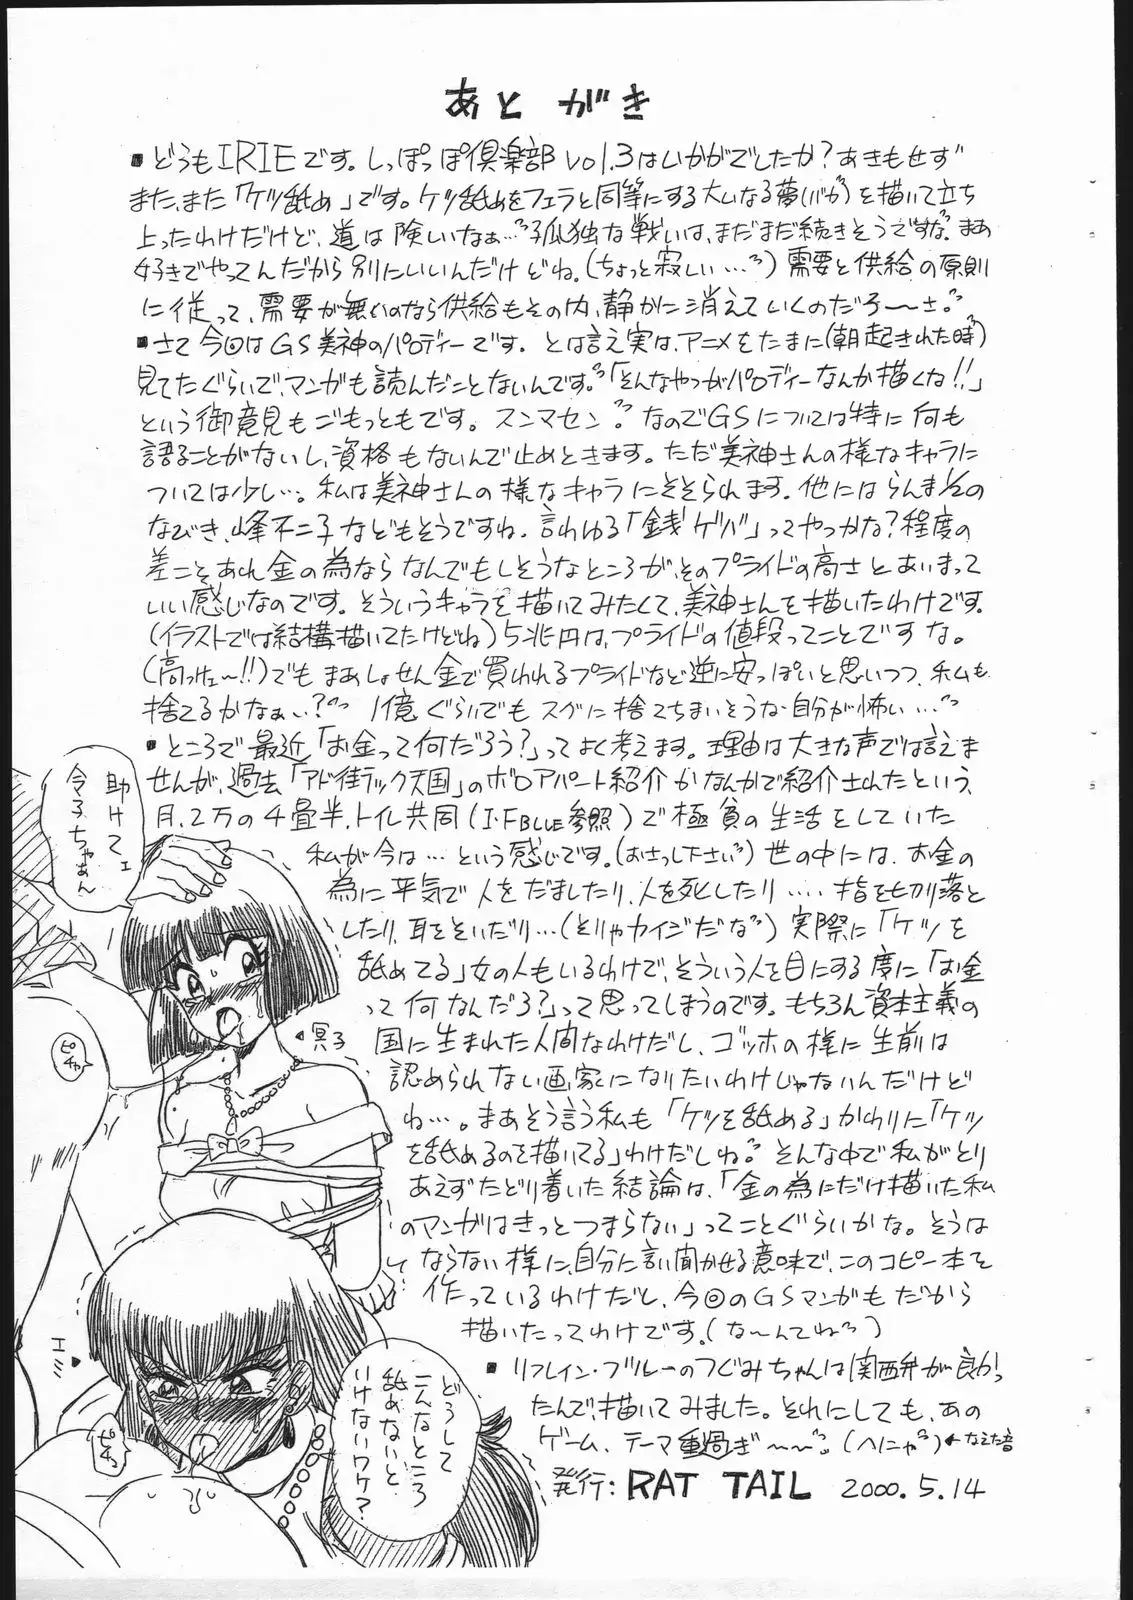 あとがき
▪どうもIRIEです。しっぽっぽ倶楽部vol.3はいかがでしたか?あきもせず
また、また「ケツ舐め」です。ケツ舐めをフェラと同等にする大いなる夢(バカ)を描いて立ち
上ったわけだけど、道は険しいなぁ…孤独な戦いは、まだまだ続きそうですな。まあ
好きでやってんだから別にいいんだけどね。(ちょっと寂しい…)需要と供給の原則
に従って、需要が無いのなら供給もその内、静かに消えていくのだろ〜さ。
▪さて今回はGS美神のパロディーです。とは言え実は、アニメをたまに(朝起きれた時)
見てたぐらいで、マンガも読んだことないんです。「そんなやつがパロディーなんか描くね!!」
という御意見もごもっともです。スンマセン。なのでGSについては特に何も
語ることがないし、資格もないんで止めときます。ただ美神さんの様なキャラに
ついては少し…。私は美神さんの様なキャラにそそられます。他にはらんま1/2の
なびき、峰不二子などもそうですね。言わゆる「銭ゲバ」ってやつかな?程度の
差こそあれ金の為ならなんでもしそうなところが、そのプライドの高さとあいまって
いい感じなのです。そういうキャラを描いてみたくて、美神さんを描いたわけです。
(イラストでは結構描いてたけどね)5兆円は、プライドの値段ってことですな。
(高っけェ〜!!)でもまあしょせん金で買われるプライドなど逆に安っぽいと思いつつ、私も
捨てるかなぁ…?1億ぐらいでもスグに捨てちまいそうな自分が怖い…
▪ところで最近「お金って何だろう?」ってよく考えます。理由は大きな声では言えま
せんが、過去「アド街ラック天国」のボロアパート紹介かなんかで紹介されたという、
月、2万の4畳半、トイレ共同(I・F BLUE参照)で極貧の生活をしていた
私が今は…という感じです。(おさっし下さい)世の中には、お金の
為に平気で人をだましたり、人を死したり….指を切り落と
したり、耳をそいだり…(そりゃカイジだな)実際に「ケツを
舐めてる」女の人もいるわけで、そういう人を目にする度に「お金
って何なんだろ?」って思ってしまうのです。もちろん資本主義の
国に生まれた人間なわけだし、ゴッホの様に生前は
認められない画家になりたいわけじゃないんだけど
ね…。まあそう言う私も「ケツを舐める」かわりに「ケツ
を舐めるのを描いてる」わけだしね。そんな中で私がとり
あえずたどり着いた結論は、「金の為にだけ描いた私
のマンガはきっとつまらない」ってことぐらいかな。そうは
ならない様に、自分に言い聞かせる意味で、このコピー本を
作っているわけだと、今回のGSマンガもだから
描いたってわけです。(な〜んてね)
▪リフレイン・ブルーのつぐみちゃんは関西弁が良かっ
たんで、描いてみました。それにしても、あの
ゲーム、テーマ重過ぎ〜〜。(へにゃ)←なえた音
発行:RAT TAIL 2000.5.14
助けてェ
令子ちゃあん
冥子
ピチャ
エミ
ピチャ
どうして
こんなところ
舐めないと
いけないワケ?